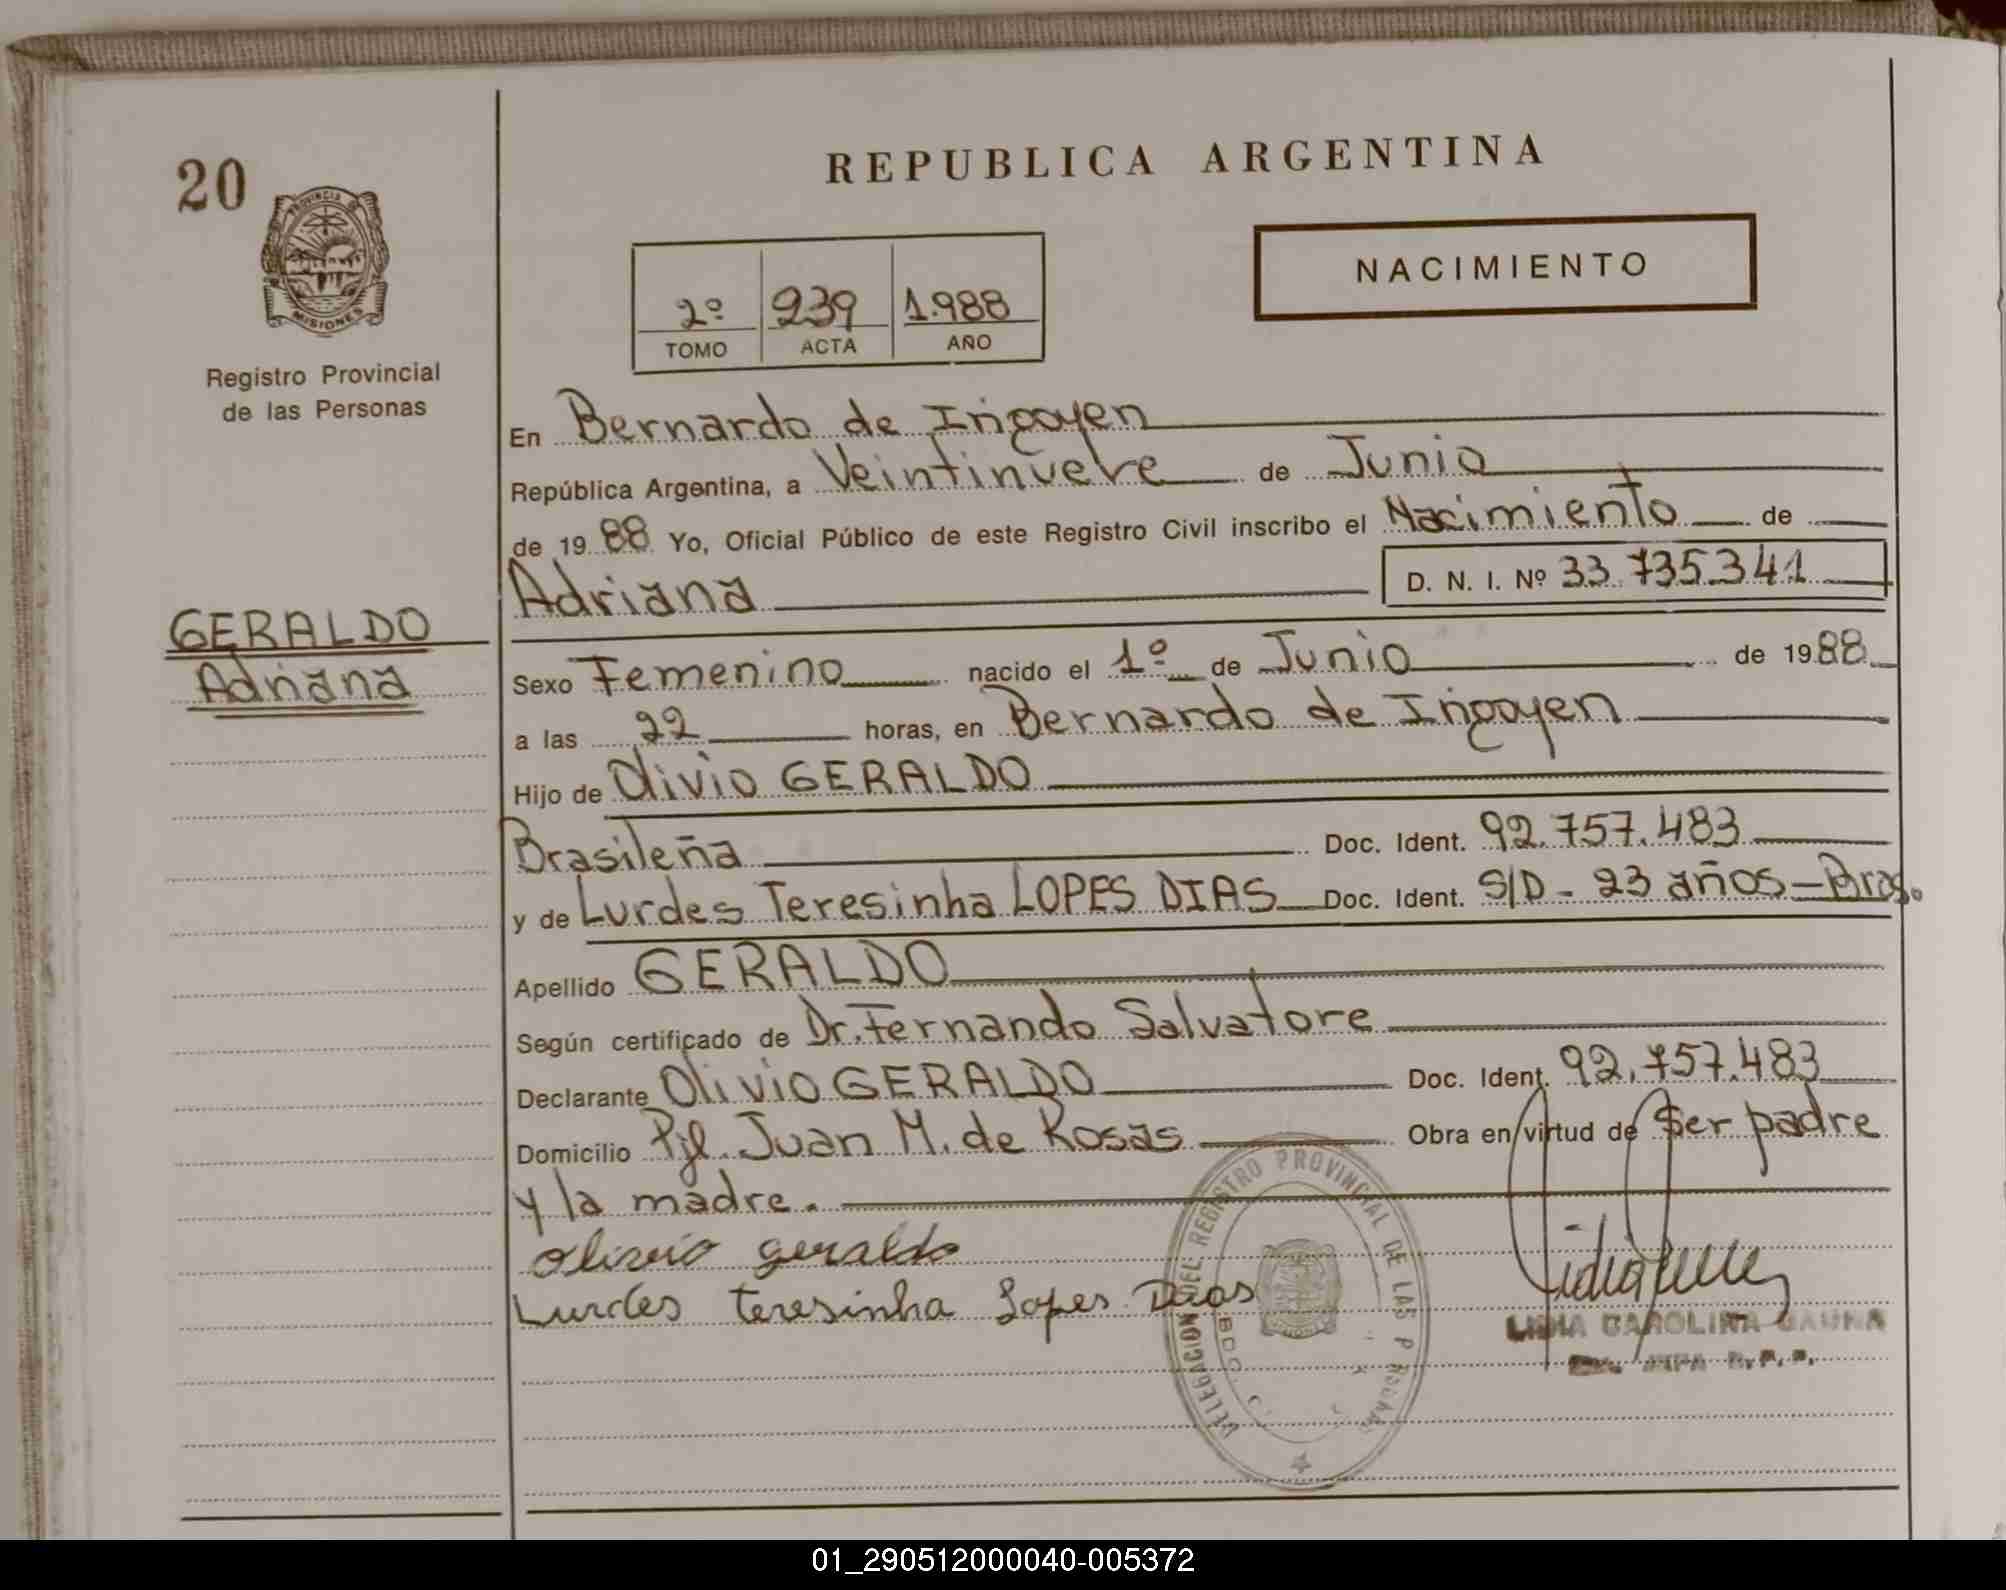 REPUBLICA ARGENTINA
20
PROVINCIA DE
MISIONES
Registro Provincial
de las Personas
NACIMIENTO
2º 239 1.988
TOMO ACTA AÑO
En Bernardo de Irigoyen
República Argentina, a Veintinueve de Junio
de 1988 Yo, Oficial Público de este Registro Civil inscribo el Nacimiento de
Adriana D. N. I. Nº 33.735.341
GERALDO
Adriana
Sexo Femenino nacido el 1º de Junio de 1988
a las 22 horas, en Bernardo de Irigoyen
Hijo de Olivio GERALDO
Brasileña Doc. Ident. 92.757.483
y de Lurdes Teresinha LOPES DIAS Doc. Ident. S/D - 23 años - Bras.
Apellido GERALDO
Según certificado de Dr. Fernando Salvatore
Declarante Olivio GERALDO Doc. Ident. 92.757.483
Domicilio Pjl. Juan M. de Rosas Obra en virtud de Ser padre
y la madre.
Olivio geraldo
Lurdes teresinha Lopes Dias
DELEGACION DEL REGISTRO PROVINCIAL DE LAS P
BDO.
CAROLINA GAUNA
R. P. P.
01_290512000040-005372